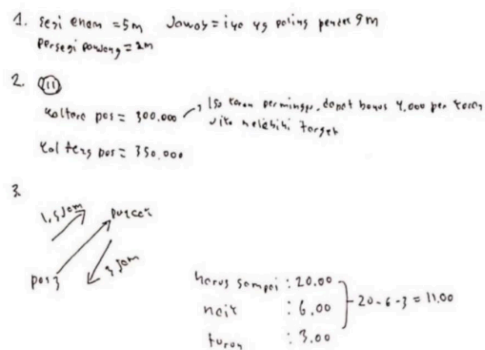 1. Segi enam = 5m Jawab = iya yg paling pendek 9m
Persegi panjang = 2m
2.
koltore pos = 300.000 150 koran perminggu, dapat bonus 4.000 per koran
jika melebihi target
kol teng pos = 350.000
3.
1,5 jam puncak
pos 3 3 jam
harus sampai : 20.00
naik : 6.00 20-6-3 = 11.00
turun : 3.00